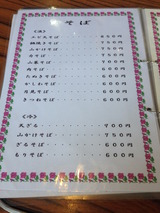 そば
<温>
えび天そば 850円
鍋焼そば 750円
山かけそば 750円
天そば 750円
山菜そば 600円
肉そば 600円
たぬきそば 600円
かしわそば 600円
月見そば 600円
きつねそば 600円
<冷>
天ざる 900円
山かけそば 750円
ざるそば 600円
もりそば 600円